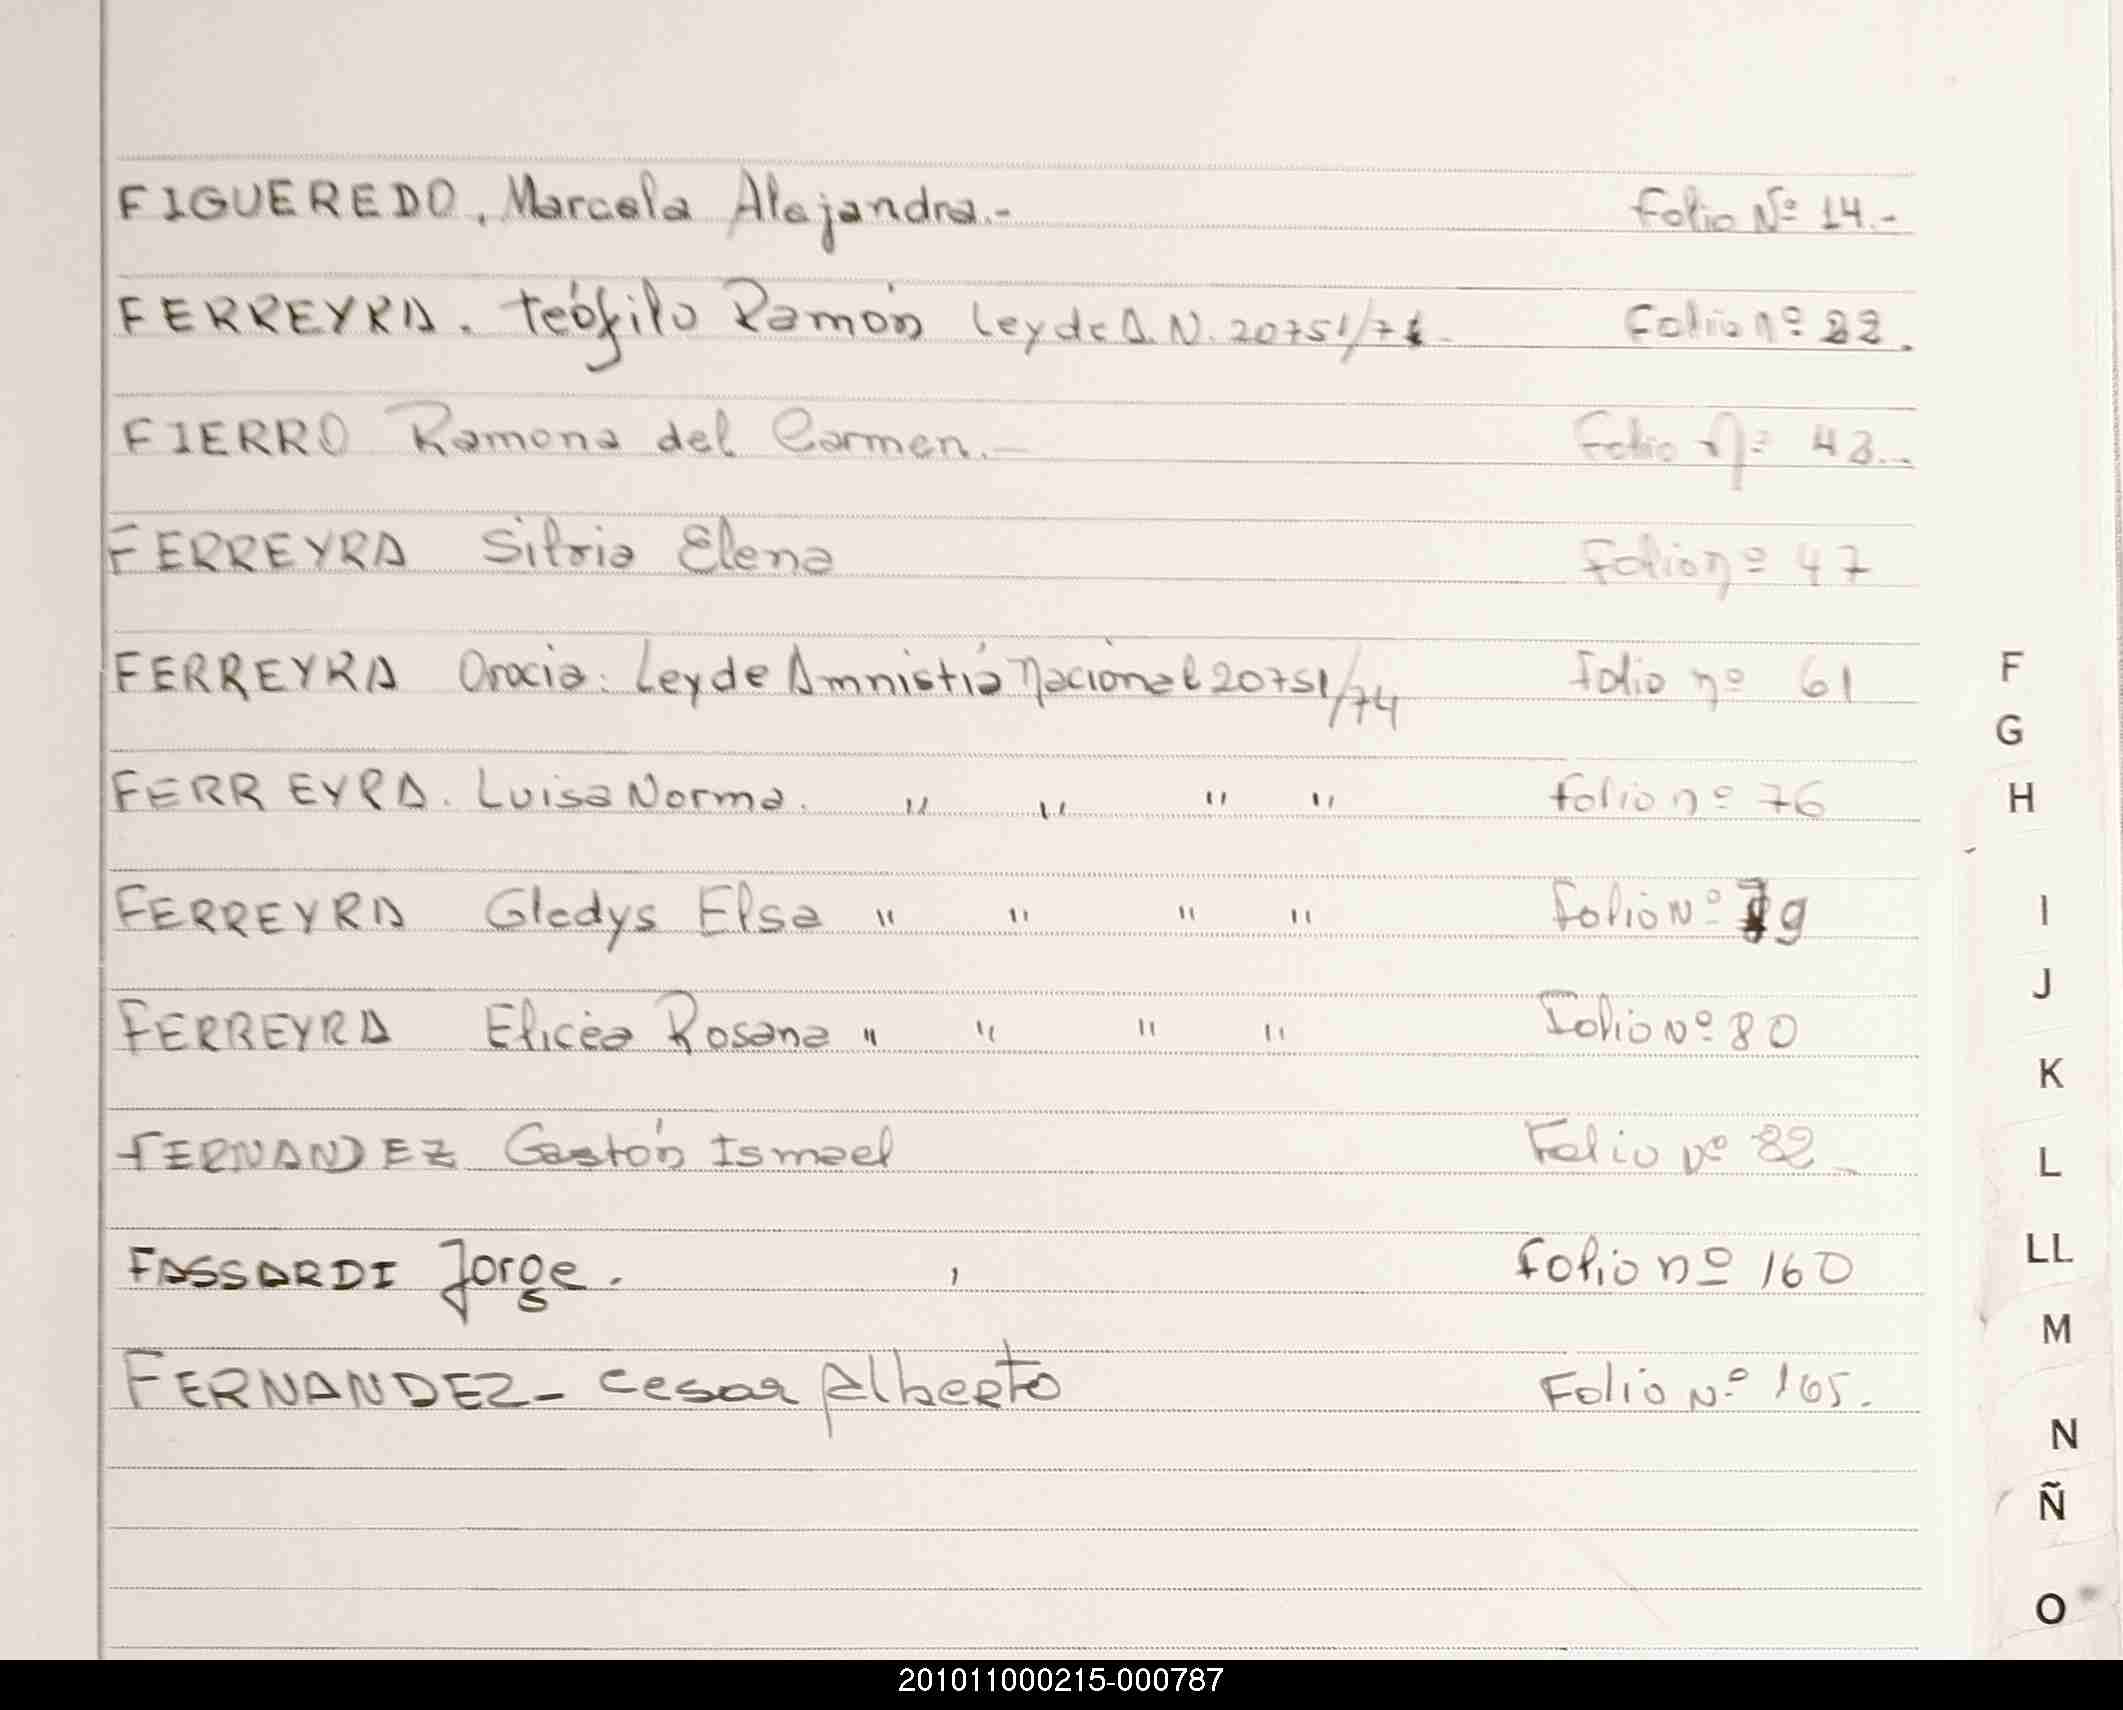 FIGUEREDO, Marcela Alejandra.- Folio Nº 14.-
FERREYRA. Teófilo Ramón Ley de A.N. 20751/74. Folio nº 22.
FIERRO Ramona del Carmen.- Folio nº 43..-
FERREYRA Silvia Elena Folio nº 47
FERREYRA Oracia. Ley de Amnistía Nacional 20751/74 Folio nº 61
FERREYRA. Luisa Norma. " " " " folio nº 76
FERREYRA Gladys Elsa " " " " Folio Nº 79
FERREYRA Elicéa Rosana " " " " Folio Nº 80
FERNANDEZ Gastón Ismael Folio Nº 82
FASSARDI Jorge. Folio nº 160
FERNANDEZ - Cesar Alberto Folio Nº 165.
F
G
H
I
J
K
L
LL
M
N
Ñ
O
201011000215-000787